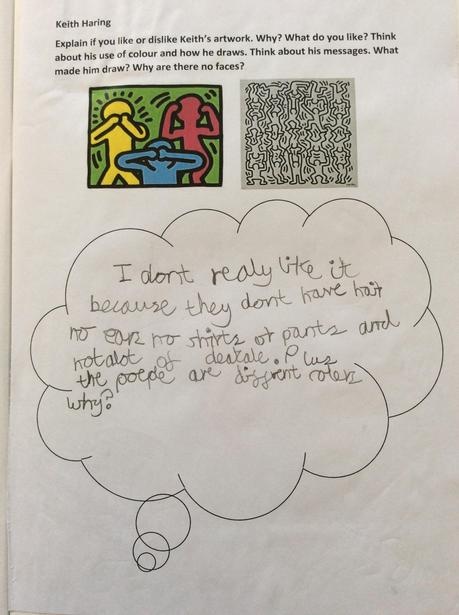 Keith Haring
Explain if you like or dislike Keith's artwork. Why? What do you like? Think
about his use of colour and how he draws. Think about his messages. What
made him draw? Why are there no faces?
I dont realy like it
because they dont have hair
no ears no shirts or pants and
not alot of
the poeple are diffrent colers
why?